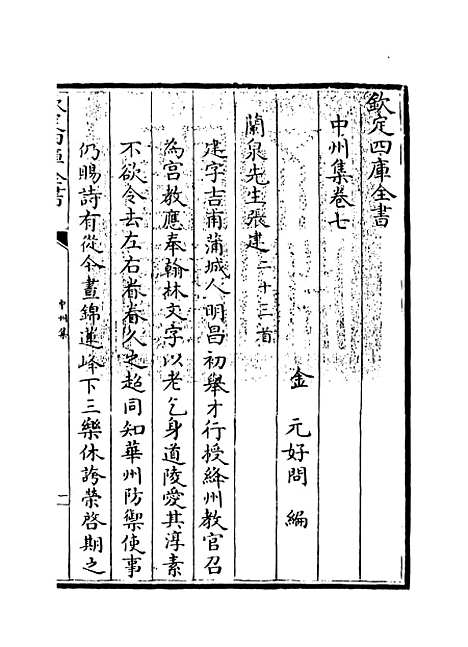 欽定四庫全書
中州集卷七
金 元好問 編
蘭泉先生張建二十三首
建字吉甫蒲城人明昌初舉才行授絳州教官召
為宮教應奉翰林文字以老乞身道陵愛其淳素
不欲令去左右眷眷久之超同知華州防禦使事
仍賜詩有從今晝錦蓮峰下三樂休誇榮啓期之
中州集